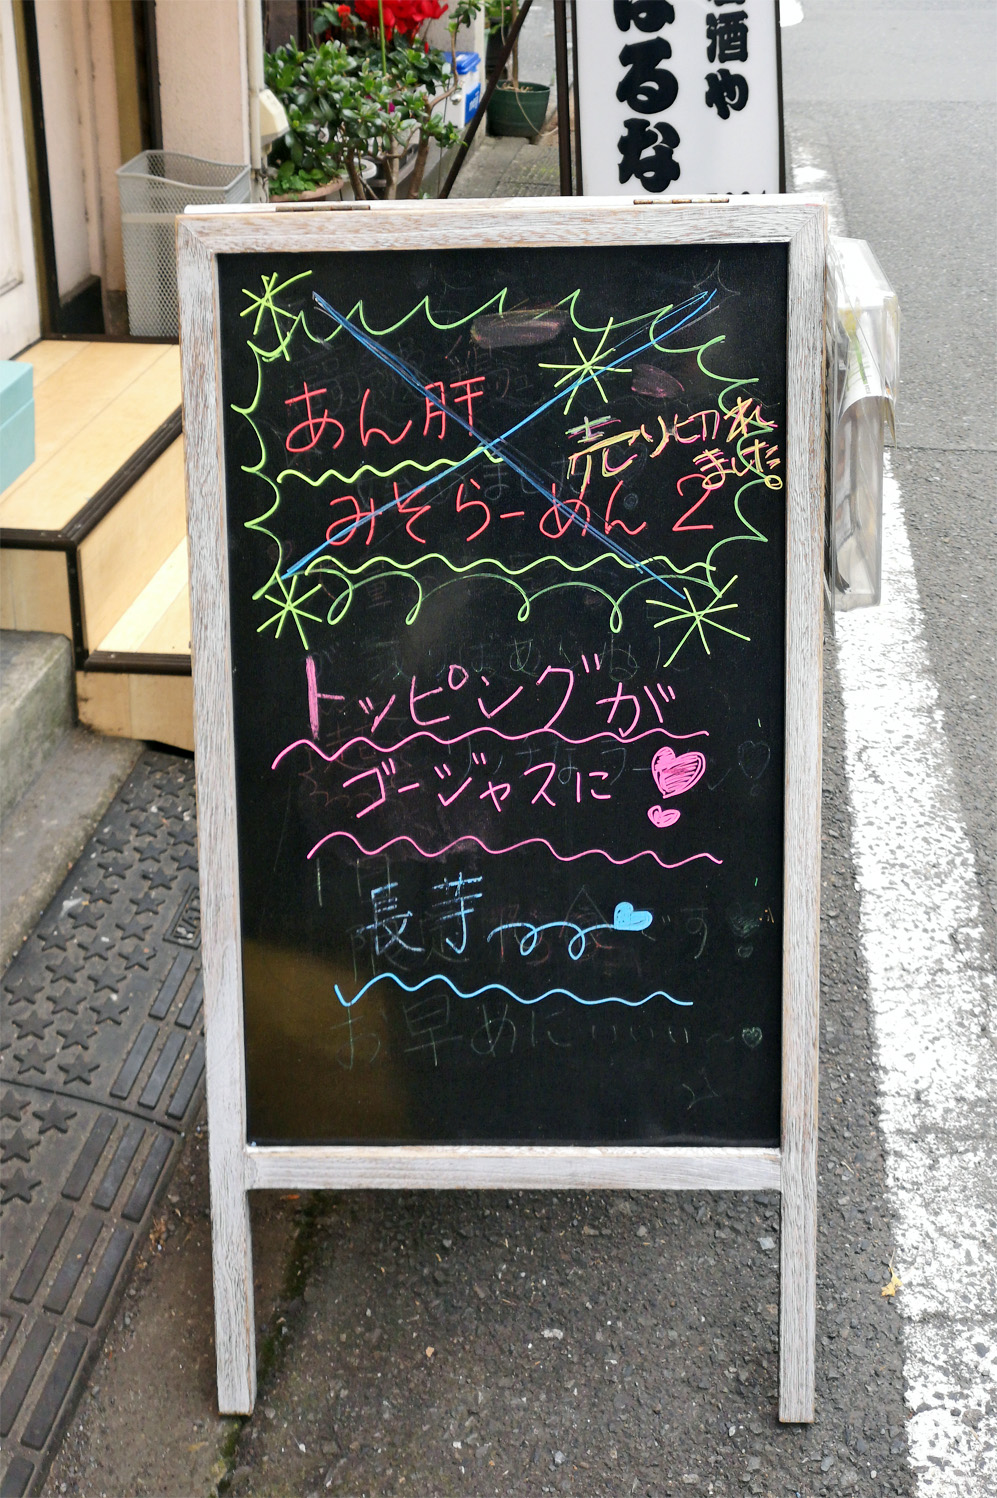 酒や
はるな
あん肝
売り切れ
ました。
みそらーめん 2
トッピングが
ゴージャスに
長芋
お早めに